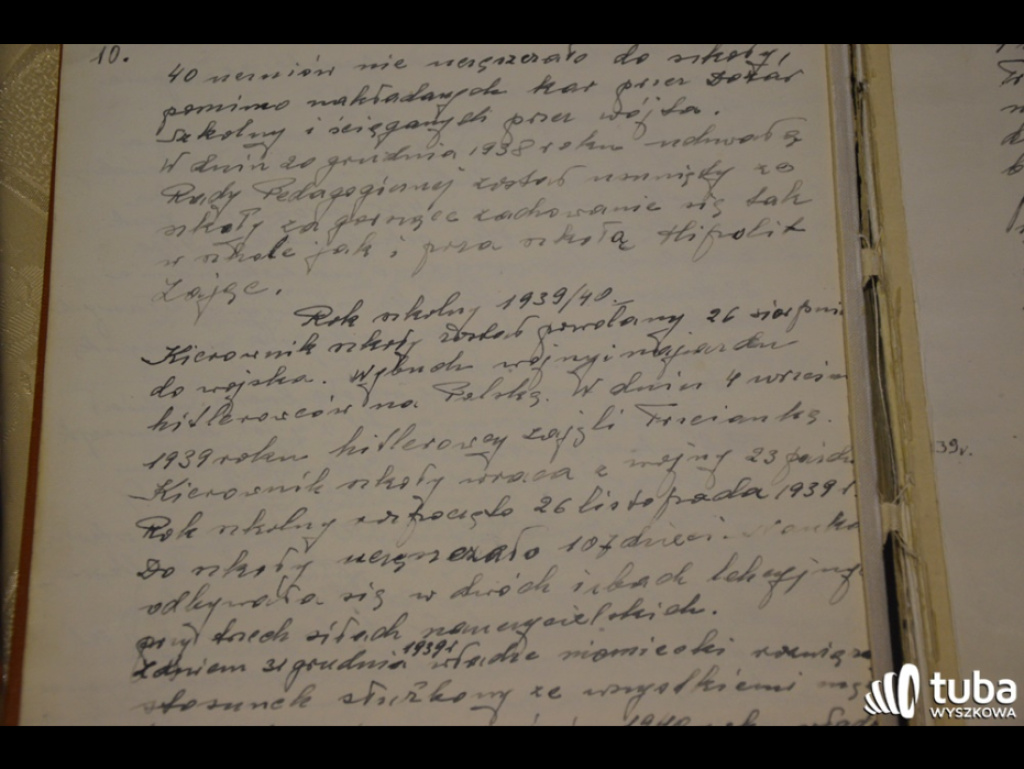 10.
40 uczniów nie uczęszczało do szkoły,
pomimo nakładanych kar przez Dozór
Szkolny i ściąganych przez wójta.
W dniu 20 grudnia 1938 roku uchwałą
Rady Pedagogicznej został usunięty ze
szkoły za gorszące zachowanie się tak
w szkole jak i poza szkołą Hipolit
Zając.
Rok szkolny 1939/40.
Kierownik szkoły został powołany 26 sierpni
do wojska. Wybuch wojny i najazdu
hitlerowców na Polskę. W dniu 4 wrześn
1939 roku hitlerowcy zajęli Trzciankę.
Kierownik szkoły wraca z wojny 23 paźdz
Rok szkolny rozpoczęto 26 listopada 1939 r.
Do szkoły uczęszczało 107 dzieci. Nauka
odbywała się w dwóch izbach lekcyjny
przy trzech siłach nauczycielskich.
Z dniem 31 grudnia 1939 r władze niemiecki rozwiąza
stosunek służbowy ze wszystkiemi
1940
39r.
tuba
WYSZKOWA